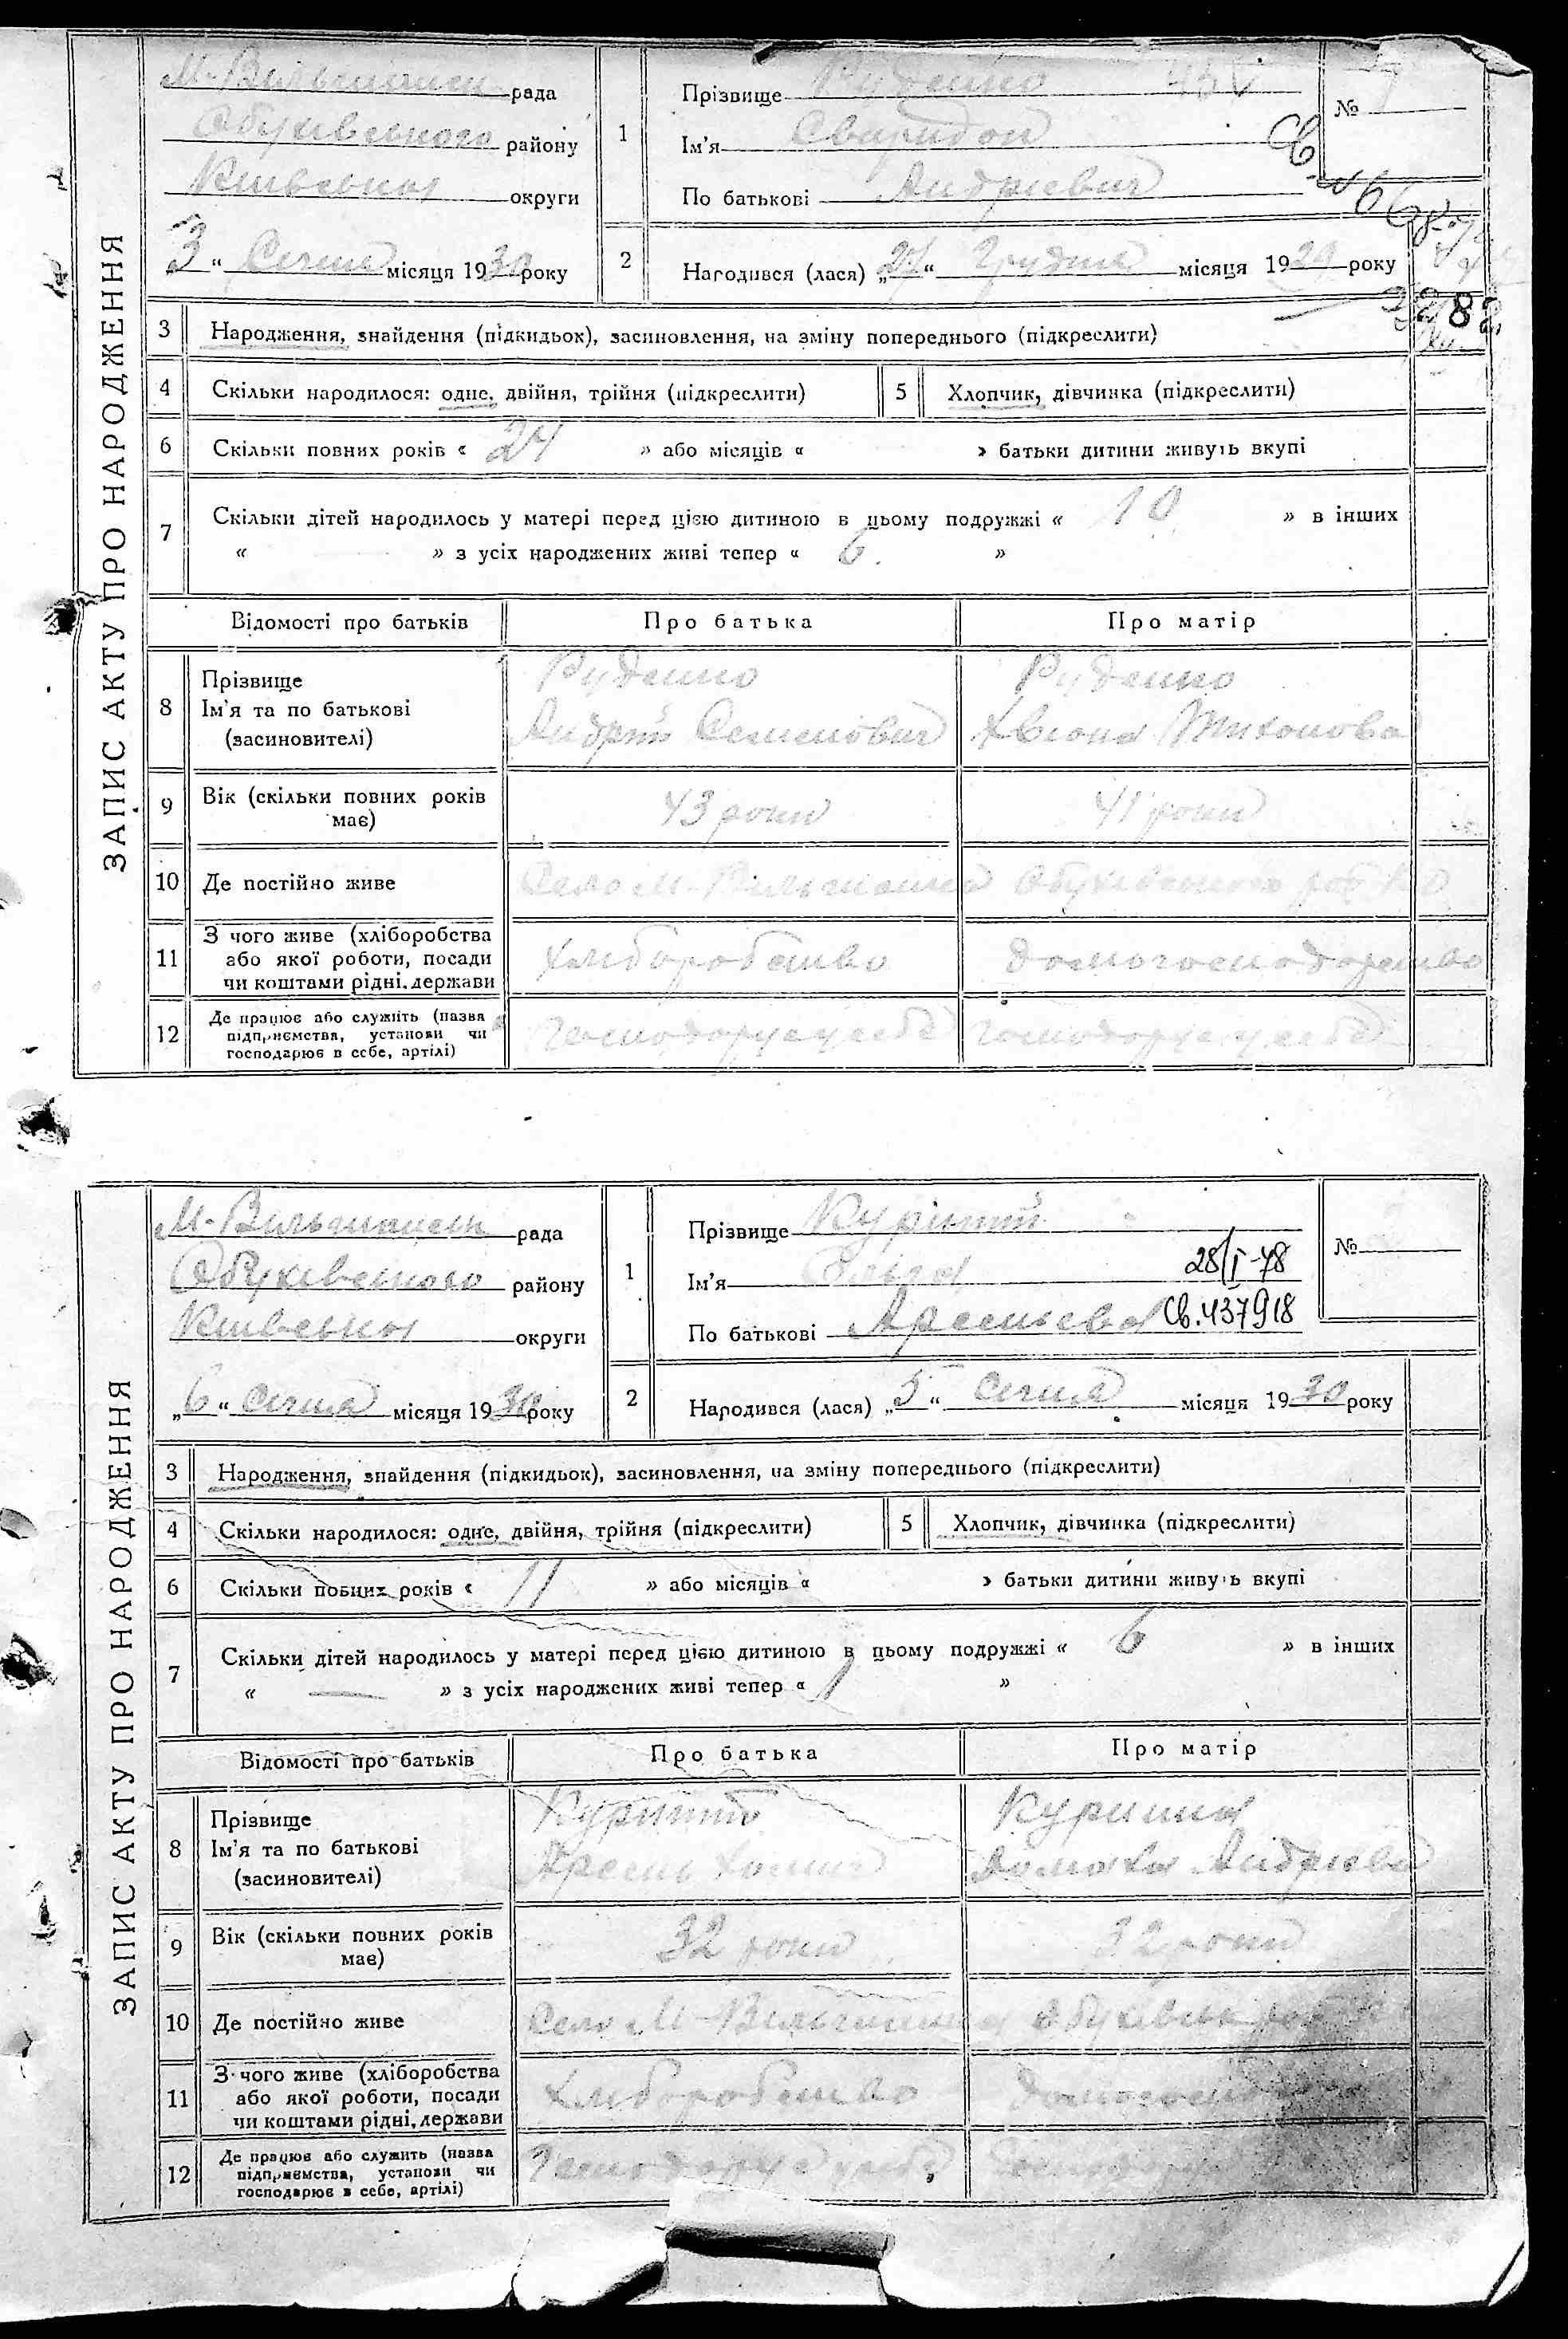 ЗАПИС АКТУ ПРО НАРОДЖЕННЯ
М-Вільшанськ рада
Обухівського району
Київської округи
„3“ Січня місяця 1930 року
1
Прізвище Руденко
Ім’я Свиридон
По батькові Андрієвич
№
2
Народився (лася) „27“ Грудня місяця 1929 року
3 Народження, знайдення (підкидьок), засиновлення, на зміну попереднього (підкреслити)
4 Скільки народилося: одне, двійня, трійня (підкреслити)
5 Хлопчик, дівчинка (підкреслити)
6 Скільки повних років « 24 » або місяців « » батьки дитини живуть вкупі
7 Скільки дітей народилось у матері перед цією дитиною в цьому подружжі « 10 » в інших
« — » з усіх народжених живі тепер « 6 »
Відомості про батьків Про батька Про матір
8 Прізвище
Ім’я та по батькові
(засиновителі)
Руденко
Андрій Семенович
Руденко
Тихонова
9 Вік (скільки повних років
має)
43 роки
41 роки
10 Де постійно живе
Село М-Вільшанка Обухівського
11 З чого живе (хліборобства
або якої роботи, посади
чи коштами рідні, держави
Хліборобство
Домогосподарство
12 Де працює або служить (назва
підприємства, установи чи
господарює в себе, артілі)
Господарує у себе
Господарує у себе
ЗАПИС АКТУ ПРО НАРОДЖЕННЯ
М-Вільшанськ рада
Обухівського району
Київської округи
„6“ Січня місяця 1930 року
1
Прізвище Курінний
Ім’я
28/I-78
По батькові Арсеньева Св.437918
№
2
Народився (лася) „5“ Січня місяця 1930 року
3 Народження, знайдення (підкидьок), засиновлення, на зміну попереднього (підкреслити)
4 Скільки народилося: одне, двійня, трійня (підкреслити)
5 Хлопчик, дівчинка (підкреслити)
6 Скільки повних років « 11 » або місяців « » батьки дитини живуть вкупі
7 Скільки дітей народилось у матері перед цією дитиною в цьому подружжі « 6 » в інших
« — » з усіх народжених живі тепер « 1 »
Відомості про батьків Про батька Про матір
8 Прізвище
Ім’я та по батькові
(засиновителі)
Курінний
Арсень
Курінна
Домаха Андрієва
9 Вік (скільки повних років
має)
32 роки
32 роки
10 Де постійно живе
Село М-Вільшанка Обухівськ
11 З чого живе (хліборобства
або якої роботи, посади
чи коштами рідні, держави
Хліборобство
12 Де працює або служить (назва
підприємства, установи чи
господарює в себе, артілі)
Господарує у себе